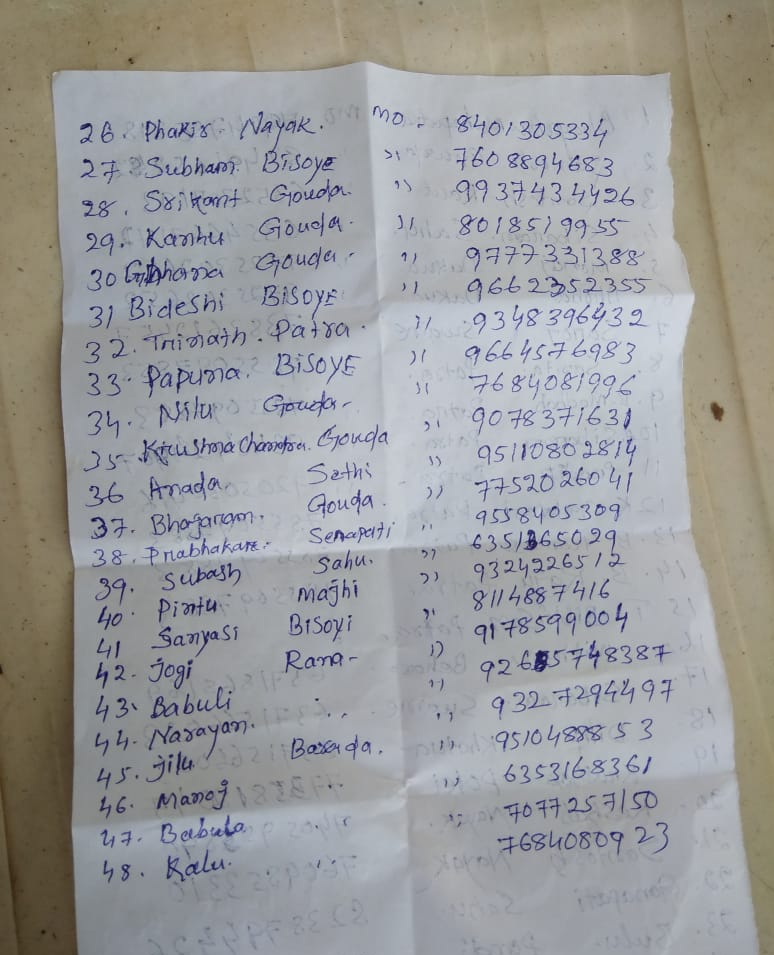 26. Phakir. Nayak. MO - 8401305334
27. Subham Bisoye ,, 7608894683
28. Srikant Gouda ,, 9937434426
29. Kanhu Gouda. ,, 8018519955
30 Gouda. ,, 9777331388
31 Bideshi Bisoye ,, 9662352355
32. Trinath. Patra. ,, 9348396432
33. Papuna. Bisoye ,, 9664576983
34. Nilu Gouda- ,, 7684081996
35- Krushna Chandra. Gouda ,, 9078371631
36 Anada Sethi ,, 95110802814
37. Bhajaram. Gouda. ,, 7752026041
38. Prabhakar. Senapati ,, 9558405309
39. Subash Sahu. ,, 6351365029
40. Pintu Majhi ,, 9324226512
41 Sanyasi Bisoyi ,, 8114887416
42. Jogi Rana- ,, 9178599004
43. Babuli ,, ,, 9265748387
44. Narayan. ,, 9327294497
45. Jilu Barada. ,, 9510488853
46. Manoj 6353168361
47. Babula ,, 7077257150
48. Kalu. ,, 7684080923